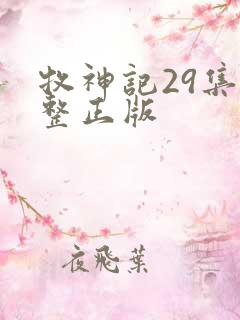 牧神記29集
整正版
夜飛葉